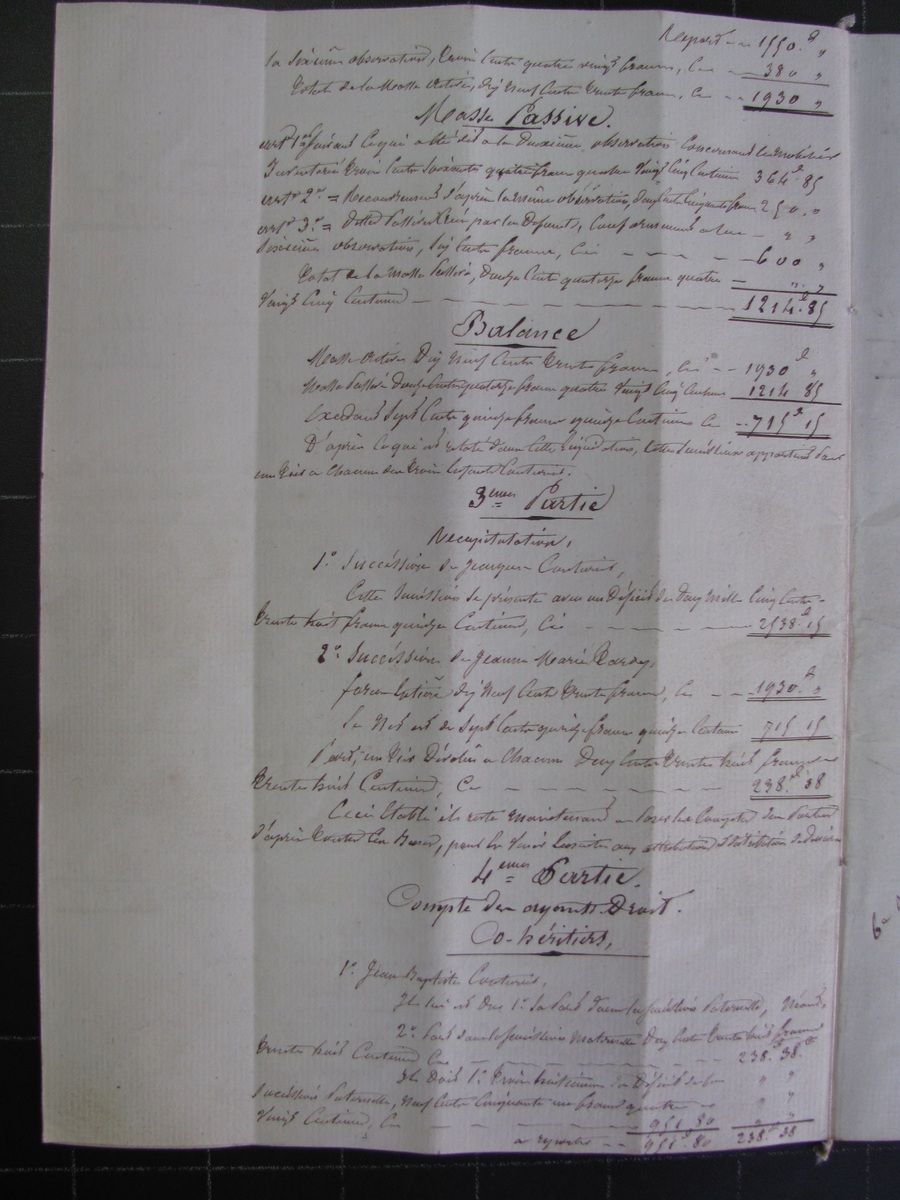 Report -- 1550.f "
la sixieme observation, trois cents quatre vingt francs, Ci -- 380 "
Total de la Masse Active, dix Neuf Cents trente francs, Ci -- 1930 "
Masse Passive.
art 1er Suivant Ce qui a été dit a la Deuxieme observation Concernant le mobilier
Inventorié trois Cents soixante quatre francs quatre Vingt Cinq Centimes 364.f 85
art 2e = Recouvrement d'après la même observation, deux Cents Cinquante francs 250 . "
art 3e = Dettes Passives Créés par la Defunte, Conformement a la -- " "
Sixieme observation, Six Cents francs, Cis -- 600 "
Total de la Masse Passive, Douze Cents quatorze francs quatre
Vingt Cinq Centimes -- 1214.f 85
Balance
Masse Active Dix Neuf Cents trente francs, Ci -- 1930 f "
Masse Passive Douze Cents quatorze francs quatre Vingt Cinq Centimes 1214 85
Excedant Sept Cents quinze francs quinze Centimes Ci -- 715.f 15
D'après Ce qui est relaté dans Cette Liquidation, Cette Succéssion appartient pour
un tiers a Chacun des trois Enfants Couturier.
3eme Partie
Recapitulation,
1° Succéssion de Jacques Couturier,
Cette Succéssion se présente avec un Déficit de Deux Mille Cinq Cents
trente huit francs quinze Centimes, Ci -- 2538.f 15
2° Succéssion de Jeanne Marie Dardy,
force Entière dix Neuf Cents trente francs, Ci -- 1930.f "
Le Net est de Sept Cents quinze francs quinze Centimes 715 15
Part, un tiers Dévolu a Chacun Deux Cents trente huit francs
trente huit Centimes, Ci -- 238.f 38
Ceci Etabli il reste maintenant a fixer les Comptes des Parties
d'après toutes Ces Bases, pour En Venir Ensuite aux attributions
4eme Partie.
Compte des ayants Droit.
Co-héritiers,
1° Jean Baptiste Couturier,
Il lui est Dus 1° Sa Part dans la Succéssion Paternelle, Néant,
2° Part dans la Succéssion Maternelle Deux Cents trente huit francs
trente huit Centimes Ci -- 238.f 38.c
Il Doit 1° trois huitiemes du Déficit de la " "
Succéssion Paternelle, Neuf Cents Cinquante un francs quatre " "
Vingt Centimes, Ci -- 951 80 " "
a reporter -- 951.f 80 238.f 38
6°